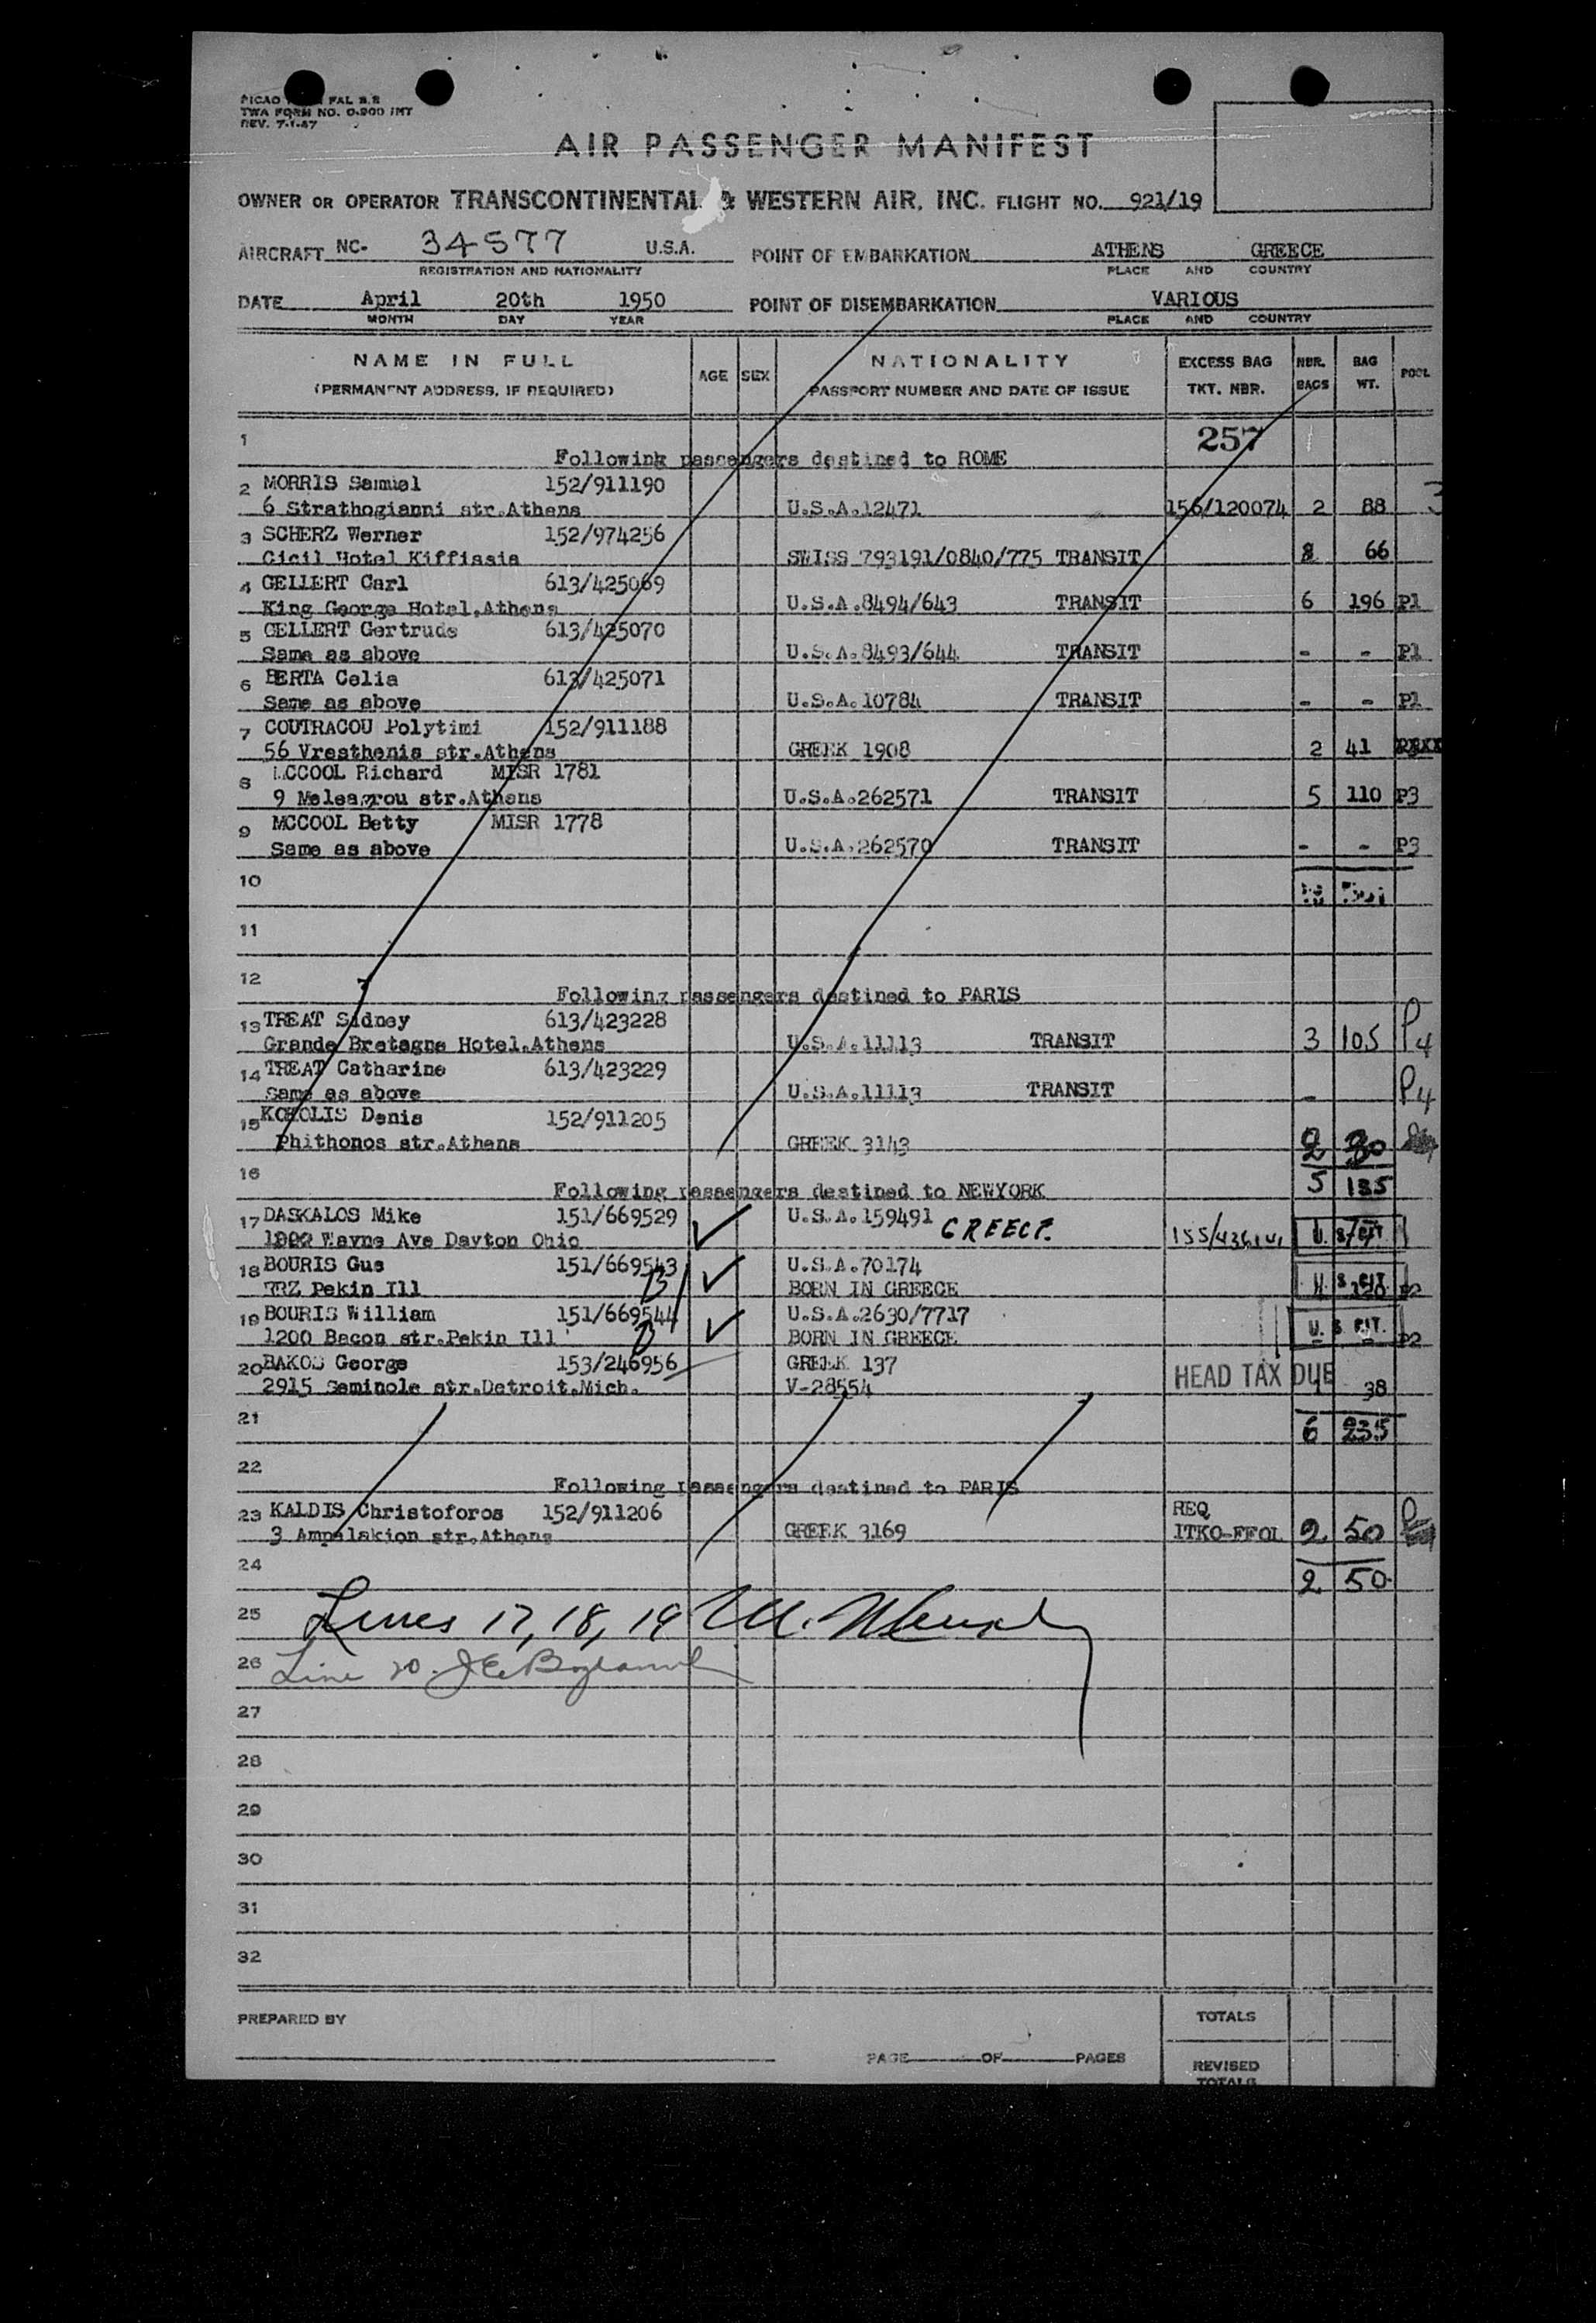 TWA FORM NO. 0-900 INT
REV. 7-1-47
AIR PASSENGER MANIFEST
OWNER OR OPERATOR TRANSCONTINENTAL & WESTERN AIR, INC. FLIGHT NO. 921/19
AIRCRAFT NC- 34577 U.S.A. POINT OF EMBARKATION ATHENS GREECE
REGISTRATION AND NATIONALITY PLACE AND COUNTRY
DATE April 20th 1950 POINT OF DISEMBARKATION VARIOUS
MONTH DAY YEAR PLACE AND COUNTRY
NAME IN FULL AGE SEX NATIONALITY EXCESS BAG NBR. BAG POOL
(PERMANENT ADDRESS, IF REQUIRED) PASSPORT NUMBER AND DATE OF ISSUE TKT. NBR. BAGS WT.
1 257
Following passengers destined to ROME
2 MORRIS Samuel 152/911190
6 Strathogianni str.Athens U.S.A.12471 156/120074 2 88 3
3 SCHERZ Werner 152/974256
Cicil Hotel Kiffissia SWISS 793191/0840/775 TRANSIT 66
4 GELLERT Carl 613/425069
King George Hotel,Athens U.S.A.8494/643 TRANSIT 6 196 P1
5 GELLERT Gertrude 613/425070
Same as above U.S.A.8493/644 TRANSIT - - P1
6 BERTA Celia 613/425071
Same as above U.S.A.10784 TRANSIT - - P1
7 COUTRACOU Polytimi 152/911188
56 Vresthenis str.Athens GREEK 1908 2 41
8 MCCOOL Richard MISR 1781
9 Meleagrou str.Athens U.S.A.262571 TRANSIT 5 110 P3
9 MCCOOL Betty MISR 1778
Same as above U.S.A.262570 TRANSIT - - P3
10
11
12
Following passengers destined to PARIS
13 TREAT Sidney 613/423228
Grande Bretagne Hotel.Athens U.S.A.11113 TRANSIT 3 105 P4
14 TREAT Catharine 613/423229
Same as above U.S.A.11113 TRANSIT - P4
15 KOROLIS Denis 152/911205
Phithonos str.Athens GREEK 3143 2 30
16 5 135
Following passengers destined to NEWYORK
17 DASKALOS Mike 151/669529 U.S.A.159491 GREECE.
Wayne Ave Dayton Ohio U. S. CIT.
18 BOURIS Gus 151/669543 U.S.A.70174
RRZ Pekin Ill BORN IN GREECE U. S. CIT. P2
19 BOURIS William 151/669544 U.S.A.2630/7717
1200 Bacon str.Pekin Ill BORN IN GREECE U. S. CIT. P2
20 BAKOS George 153/246956 GREEK 137
2915 Seminole str.Detroit.Mich. V-28554 HEAD TAX DUE 38
21 6 235
22
Following passengers destined to PARIS
23 KALDIS Christoforos 152/911206 REQ
3 Ampelakion str.Athens GREEK 3169 ITKO-FFOL 2 50
24 2 50
25 Lines 17, 18, 19
26 Line 20.
27
28
29
30
31
32
PREPARED BY TOTALS
PAGE OF PAGES
REVISED
TOTALS